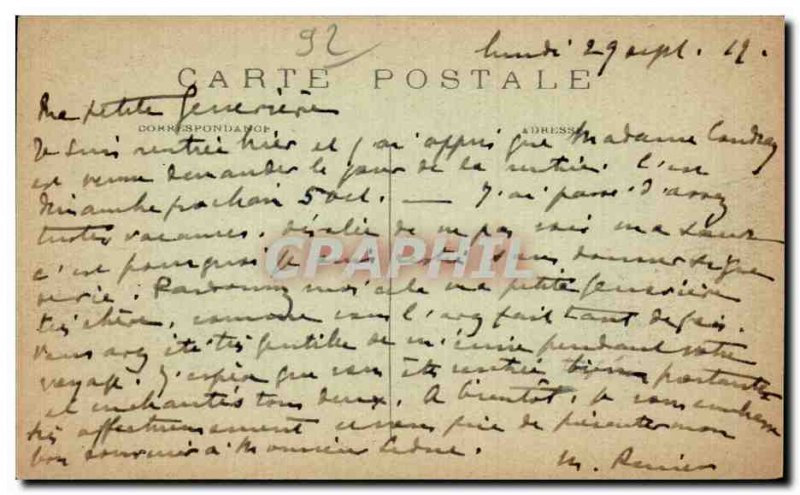 92
lundi 29 sept. 19.
CARTE POSTALE
Ma petite Geneviève
CORRESPONDANCE ADRESSE
Je suis rentrée hier et j'ai appris que Madame
est venue demander le jour de la rentrée. C'est
dimanche prochain 5 oct. — J'ai passé d'assez
tristes vacances, désolée de ne pas voir ma sœur
c'est pourquoi je suis restée sans donner signe
de vie. Pardonnez moi cela ma petite Geneviève
très chère, comme vous l'avez fait tant de fois.
Vous avez été très gentille de m'écrire pendant votre
voyage. J'espère que vous êtes rentrée bien portantes
et enchantés tous deux. A bientôt, je vous embrasse
très affectueusement et vous prie de présenter mon
bon souvenir à Monsieur
M. Renier
CPAPHIL